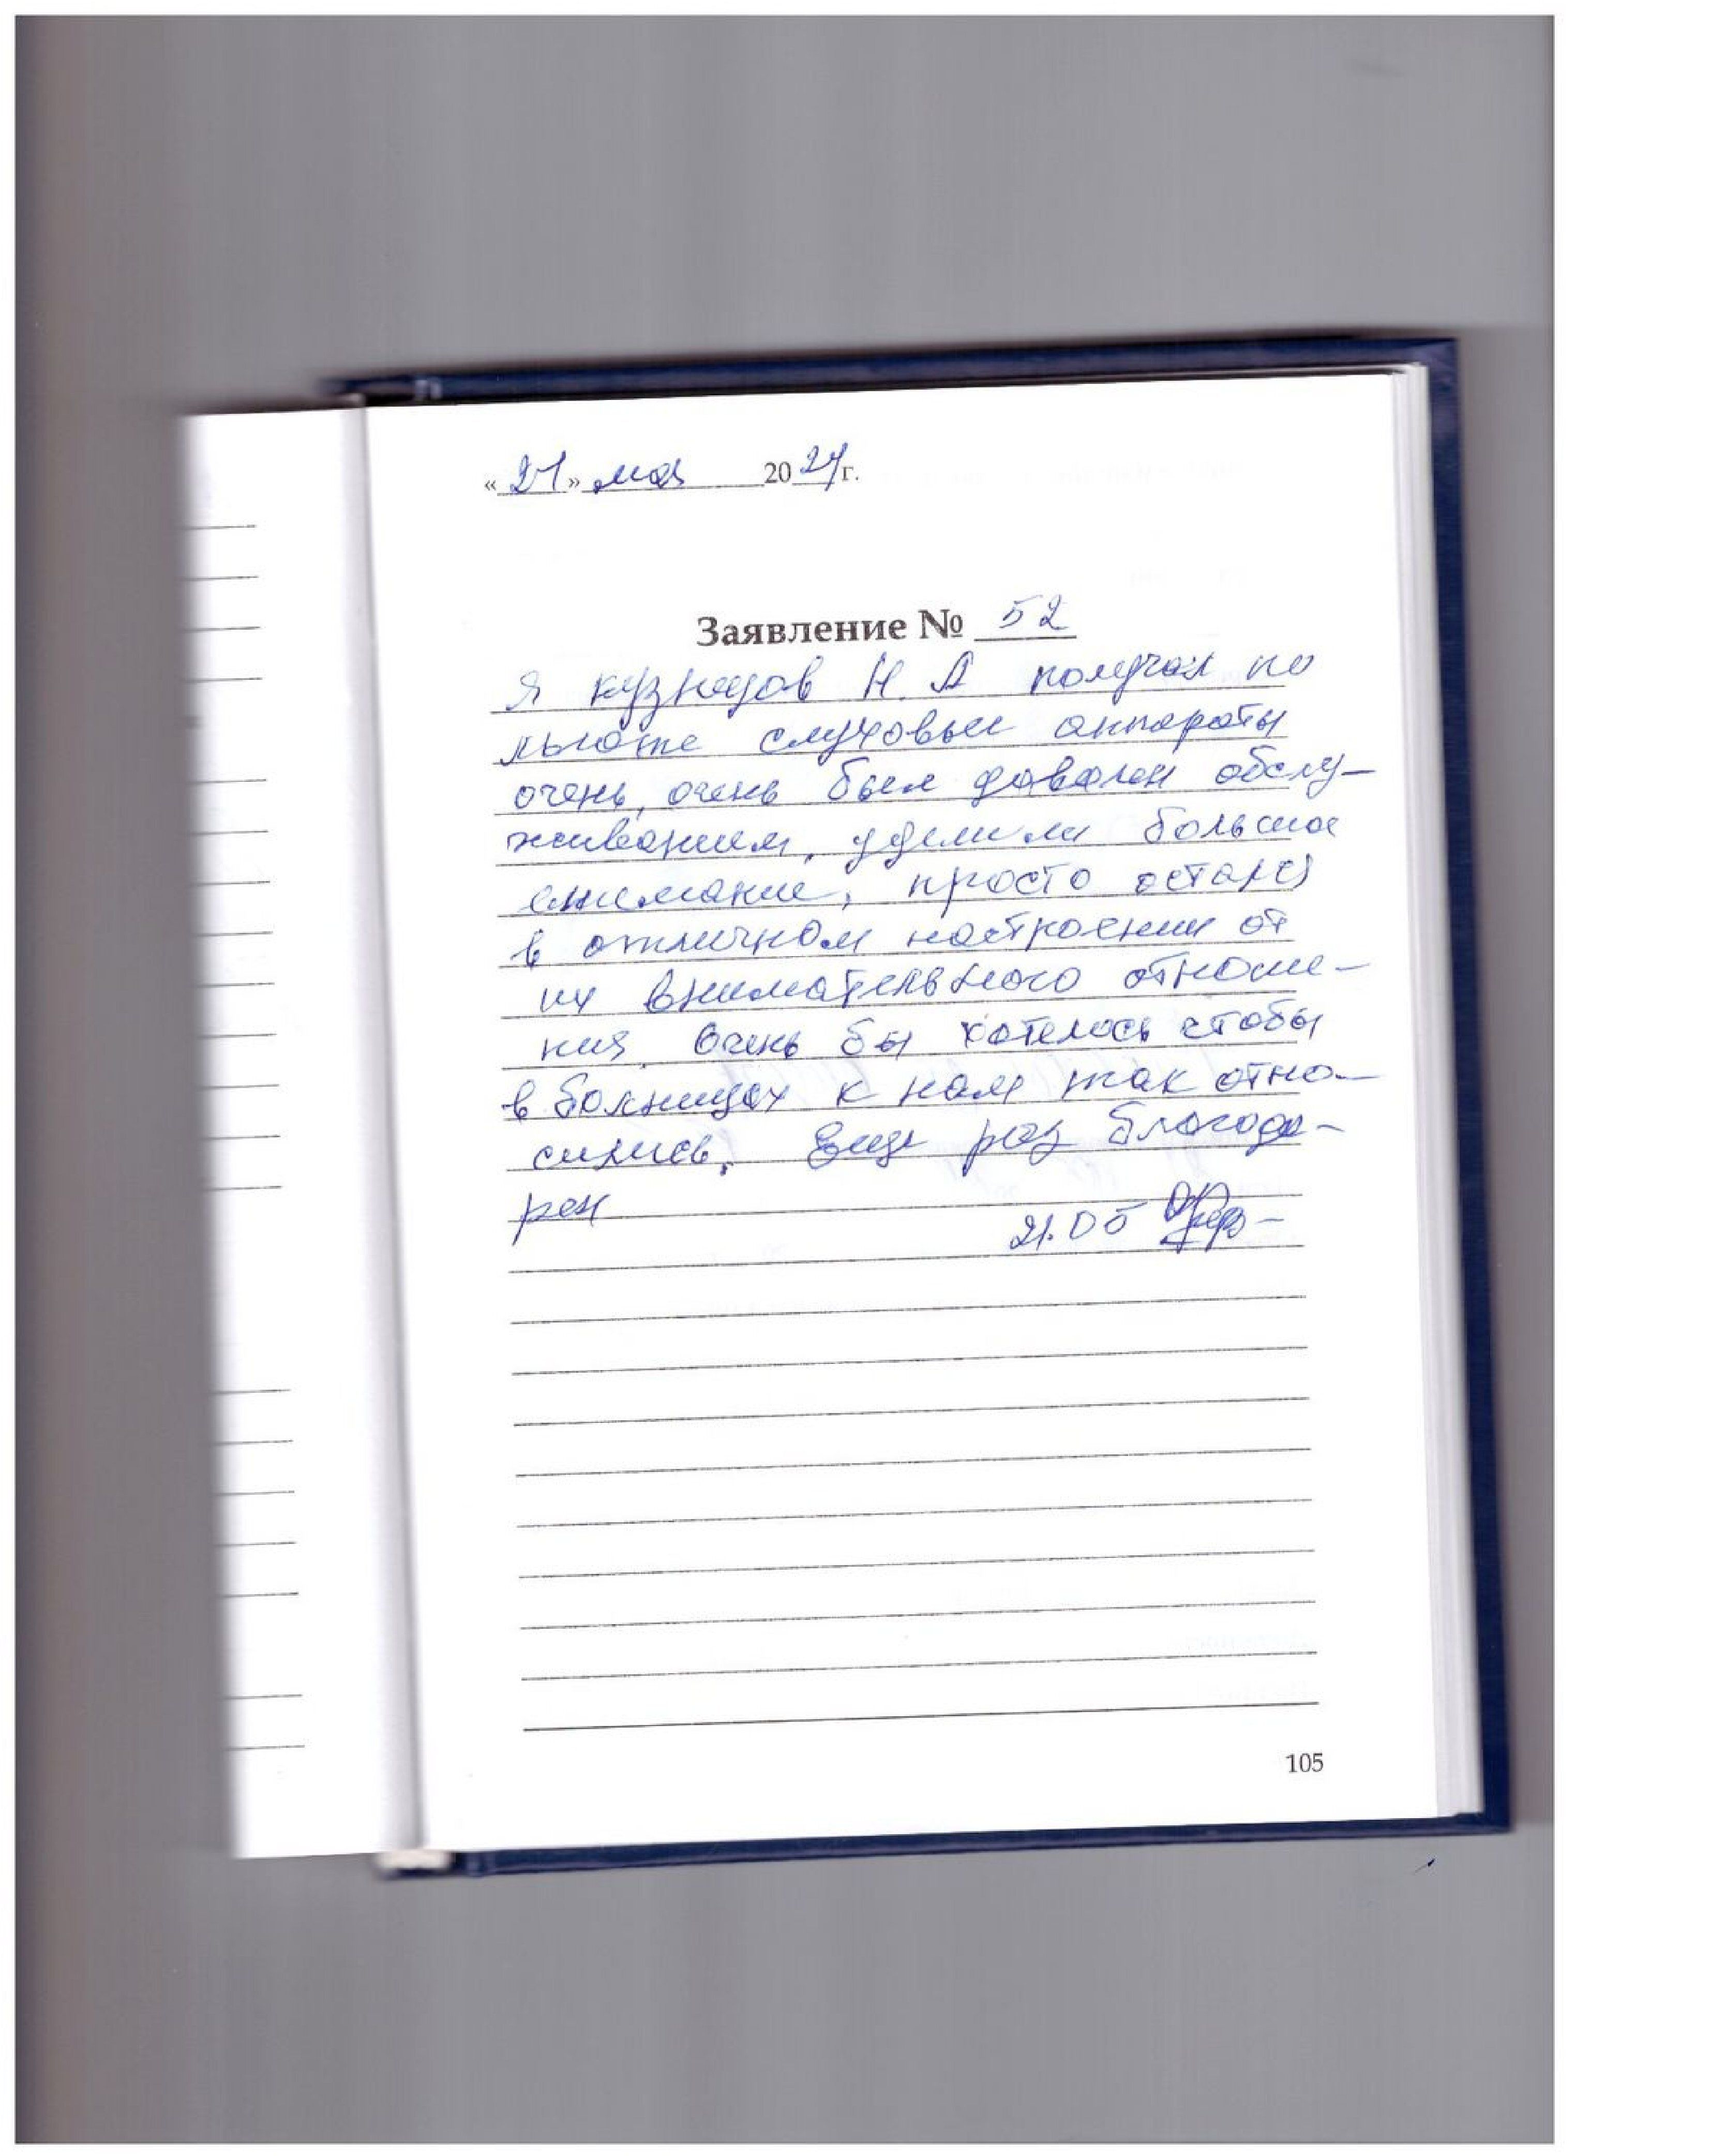 «21» мая 2024г.
Заявление № 52
Я Кузнецов Н. А получал по
льготе слуховые аппараты
очень, очень был доволен обслу-
живанием, уделили большое
внимание, просто остался
в отличном настроении от
их внимательного отноше-
ния. Очень бы хотелось чтобы
в больницах к нам так отно-
сились. Еще раз благода-
рен
21.05
105